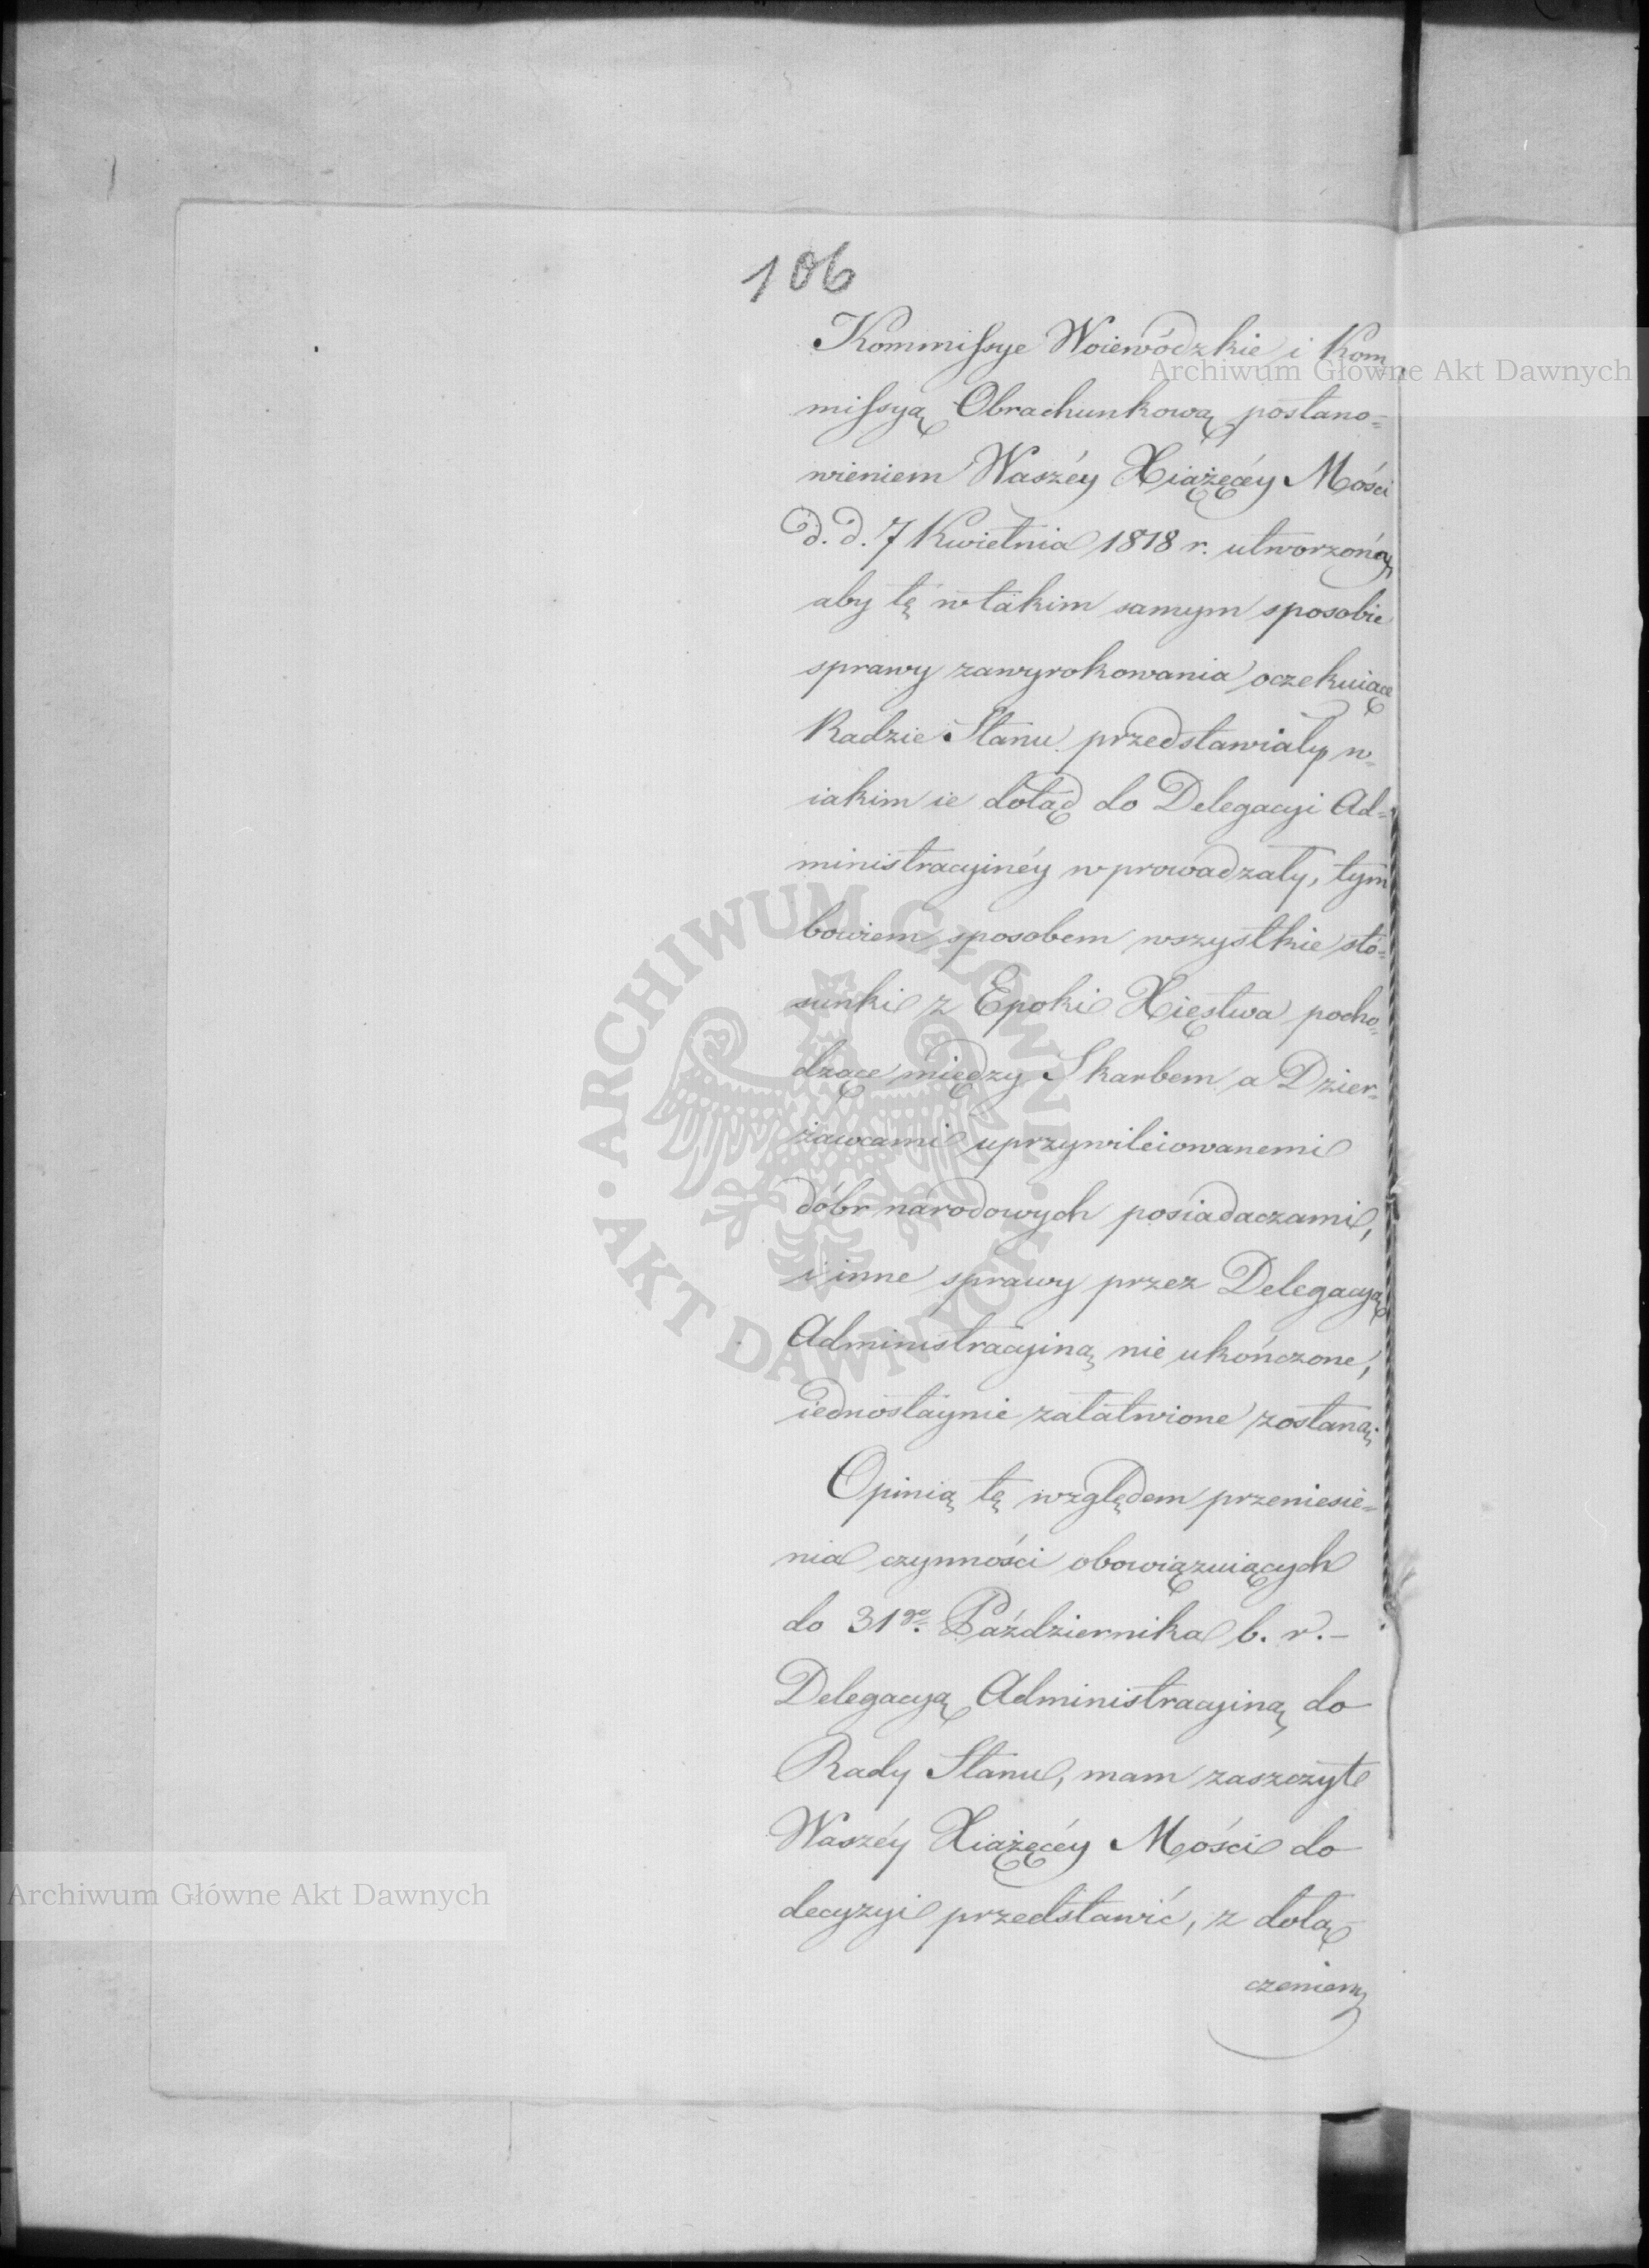 106
Kommissye Woiewódzkie i Kom
Archiwum Główne Akt Dawnych
missyą Obrachunkową postano=
wieniem Waszéy Xiążęcéy Mości
d. d. 7 Kwietnia 1818 r. utworzoną
aby tę w takim samym sposobie
sprawy zawyrokowania oczekuiące
Radzie Stanu przedstawiały w=
iakim ie dotąd do Delegacyi Ad=
ministracyinéy wprowadzały, tym
bowiem sposobem wszystkie sto=
sunki z Epoki Xięstwa pocho=
dzące między Skarbem a Dzier=
żawcami uprzywileiowanemi
dóbr narodowych posiadaczami,
i inne sprawy przez Delegacyą
Administracyiną nie ukończone,
iednostaynie załatwione zostaną.
Opinią tę względem przeniesie=
nia czynności obowiązuiących
do 31go. Października b. r. –
Delegacyą Administracyiną do
Rady Stanu, mam zaszczyt
Waszéy Xiążęcéy Mości do
decyzyi przedstawić, z dołą
czeniem
ARCHIWUM GŁÓWNE · AKT DAWNYCH ·
Archiwum Główne Akt Dawnych